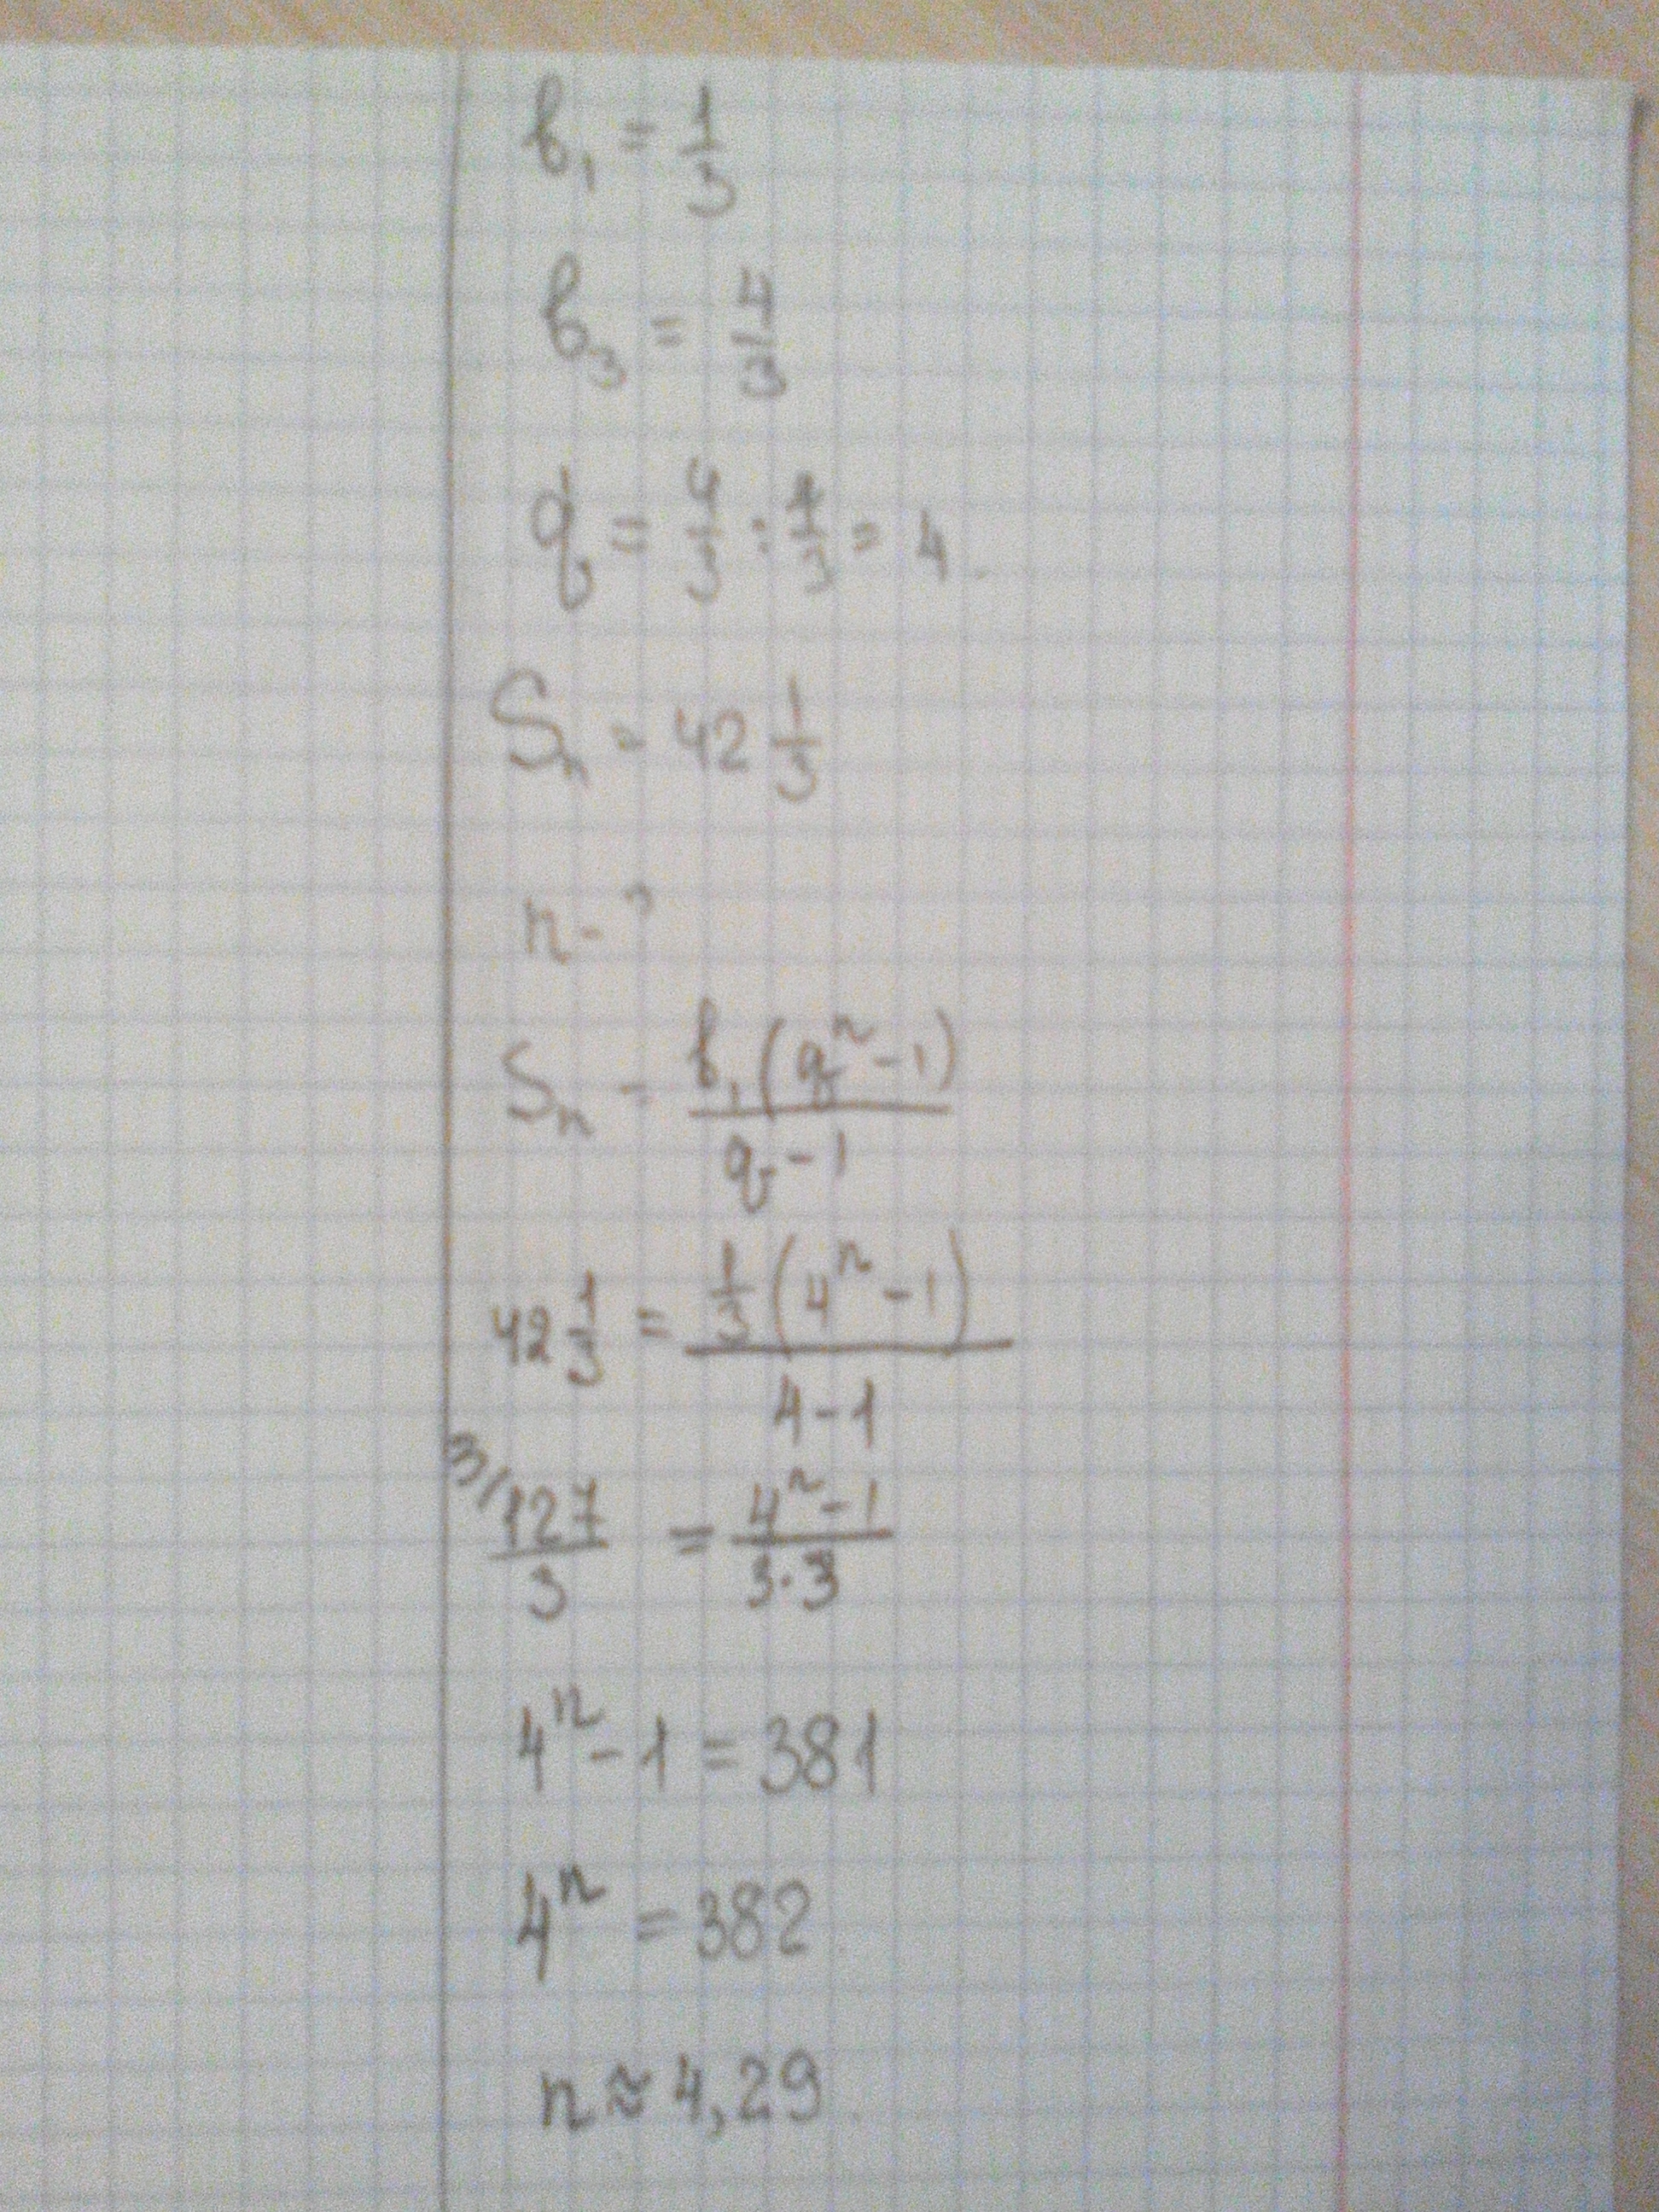 b₁ = 1/3
b₃ = 4/3
q = 4/3 : 1/3 = 4.
Sₙ = 42 1/3
n - ?
Sₙ = b₁(qⁿ - 1) / (q - 1)
42 1/3 = 1/3 (4ⁿ - 1) / (4 - 1)
3/ 127/3 = (4ⁿ - 1) / (3 · 3)
4ⁿ - 1 = 381
4ⁿ = 382
n ≈ 4,29